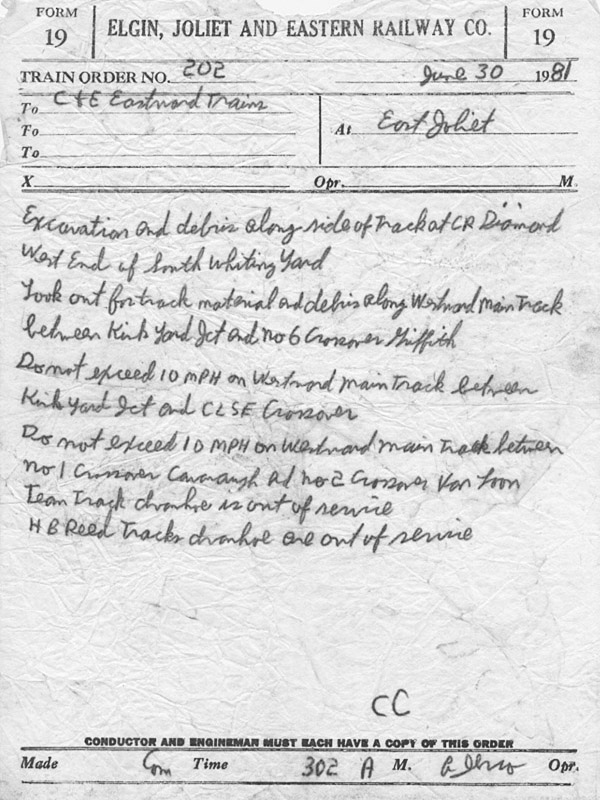 FORM 19
ELGIN, JOLIET AND EASTERN RAILWAY CO.
FORM 19
TRAIN ORDER NO. 202 June 30 1981
To C&E Eastward Trains
To
To
At East Joliet
X Opr. M
Excavation and debris along side of Track at CR Diamond
West End of South Whiting Yard
Look out for track material and debris along Westward Main Track
between Kirk Yard Jct and No 6 Crossover Griffith
Do not exceed 10 MPH on Westward Main Track between
Kirk Yard Jct and CLSE Crossover
Do not exceed 10 MPH on Westward Main Track between
No 1 Crossover Cavanaugh ad No 2 Crossover Van Loon
Team Track Ivanhoe is out of service
H B Reed Tracks Ivanhoe are out of service
CC
CONDUCTOR AND ENGINEMAN MUST EACH HAVE A COPY OF THIS ORDER
Made Com Time 302 A M. Opr.